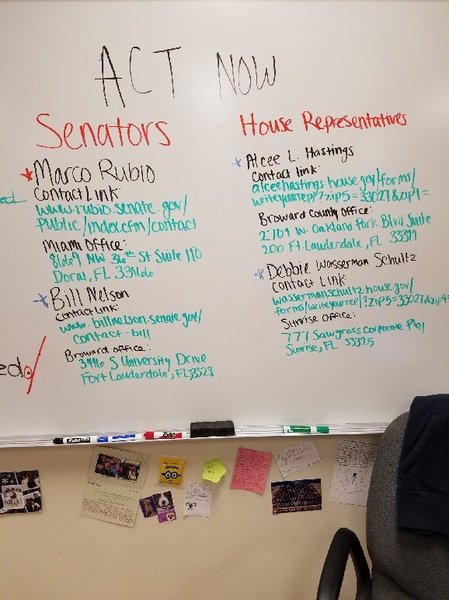 ACT NOW
Senators
* Marco Rubio
Contact Link:
www.rubio.senate.gov/
public/index.cfm/contact
Miami Office:
8669 NW 36th St Suite 110
Doral, FL 33166
* Bill Nelson
contact link:
www.billnelson.senate.gov/
contact-bill
Broward office:
3416 S University Drive
Fort Lauderdale, FL 33328
House Representatives
* Alcee L. Hastings
contact link:
alceehastings.house.gov/forms/
writeyourrep/?zip5=33027&zip4=
Broward County office:
2701 W. Oakland Park Blvd Suite
200 Ft. Lauderdale, FL 33311
* Debbie Wasserman Schultz
contact Link:
wassermanschultz.house.gov/
forms/writeyourrep/?zip5=33027&zip4=
Sunrise Office:
777 Sawgrass Corporate Pky
Sunrise, FL 33325
EXPO